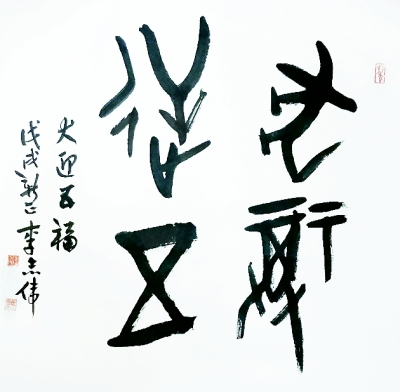 犬迎
五福
犬迎五福
戊戌新正李志伟